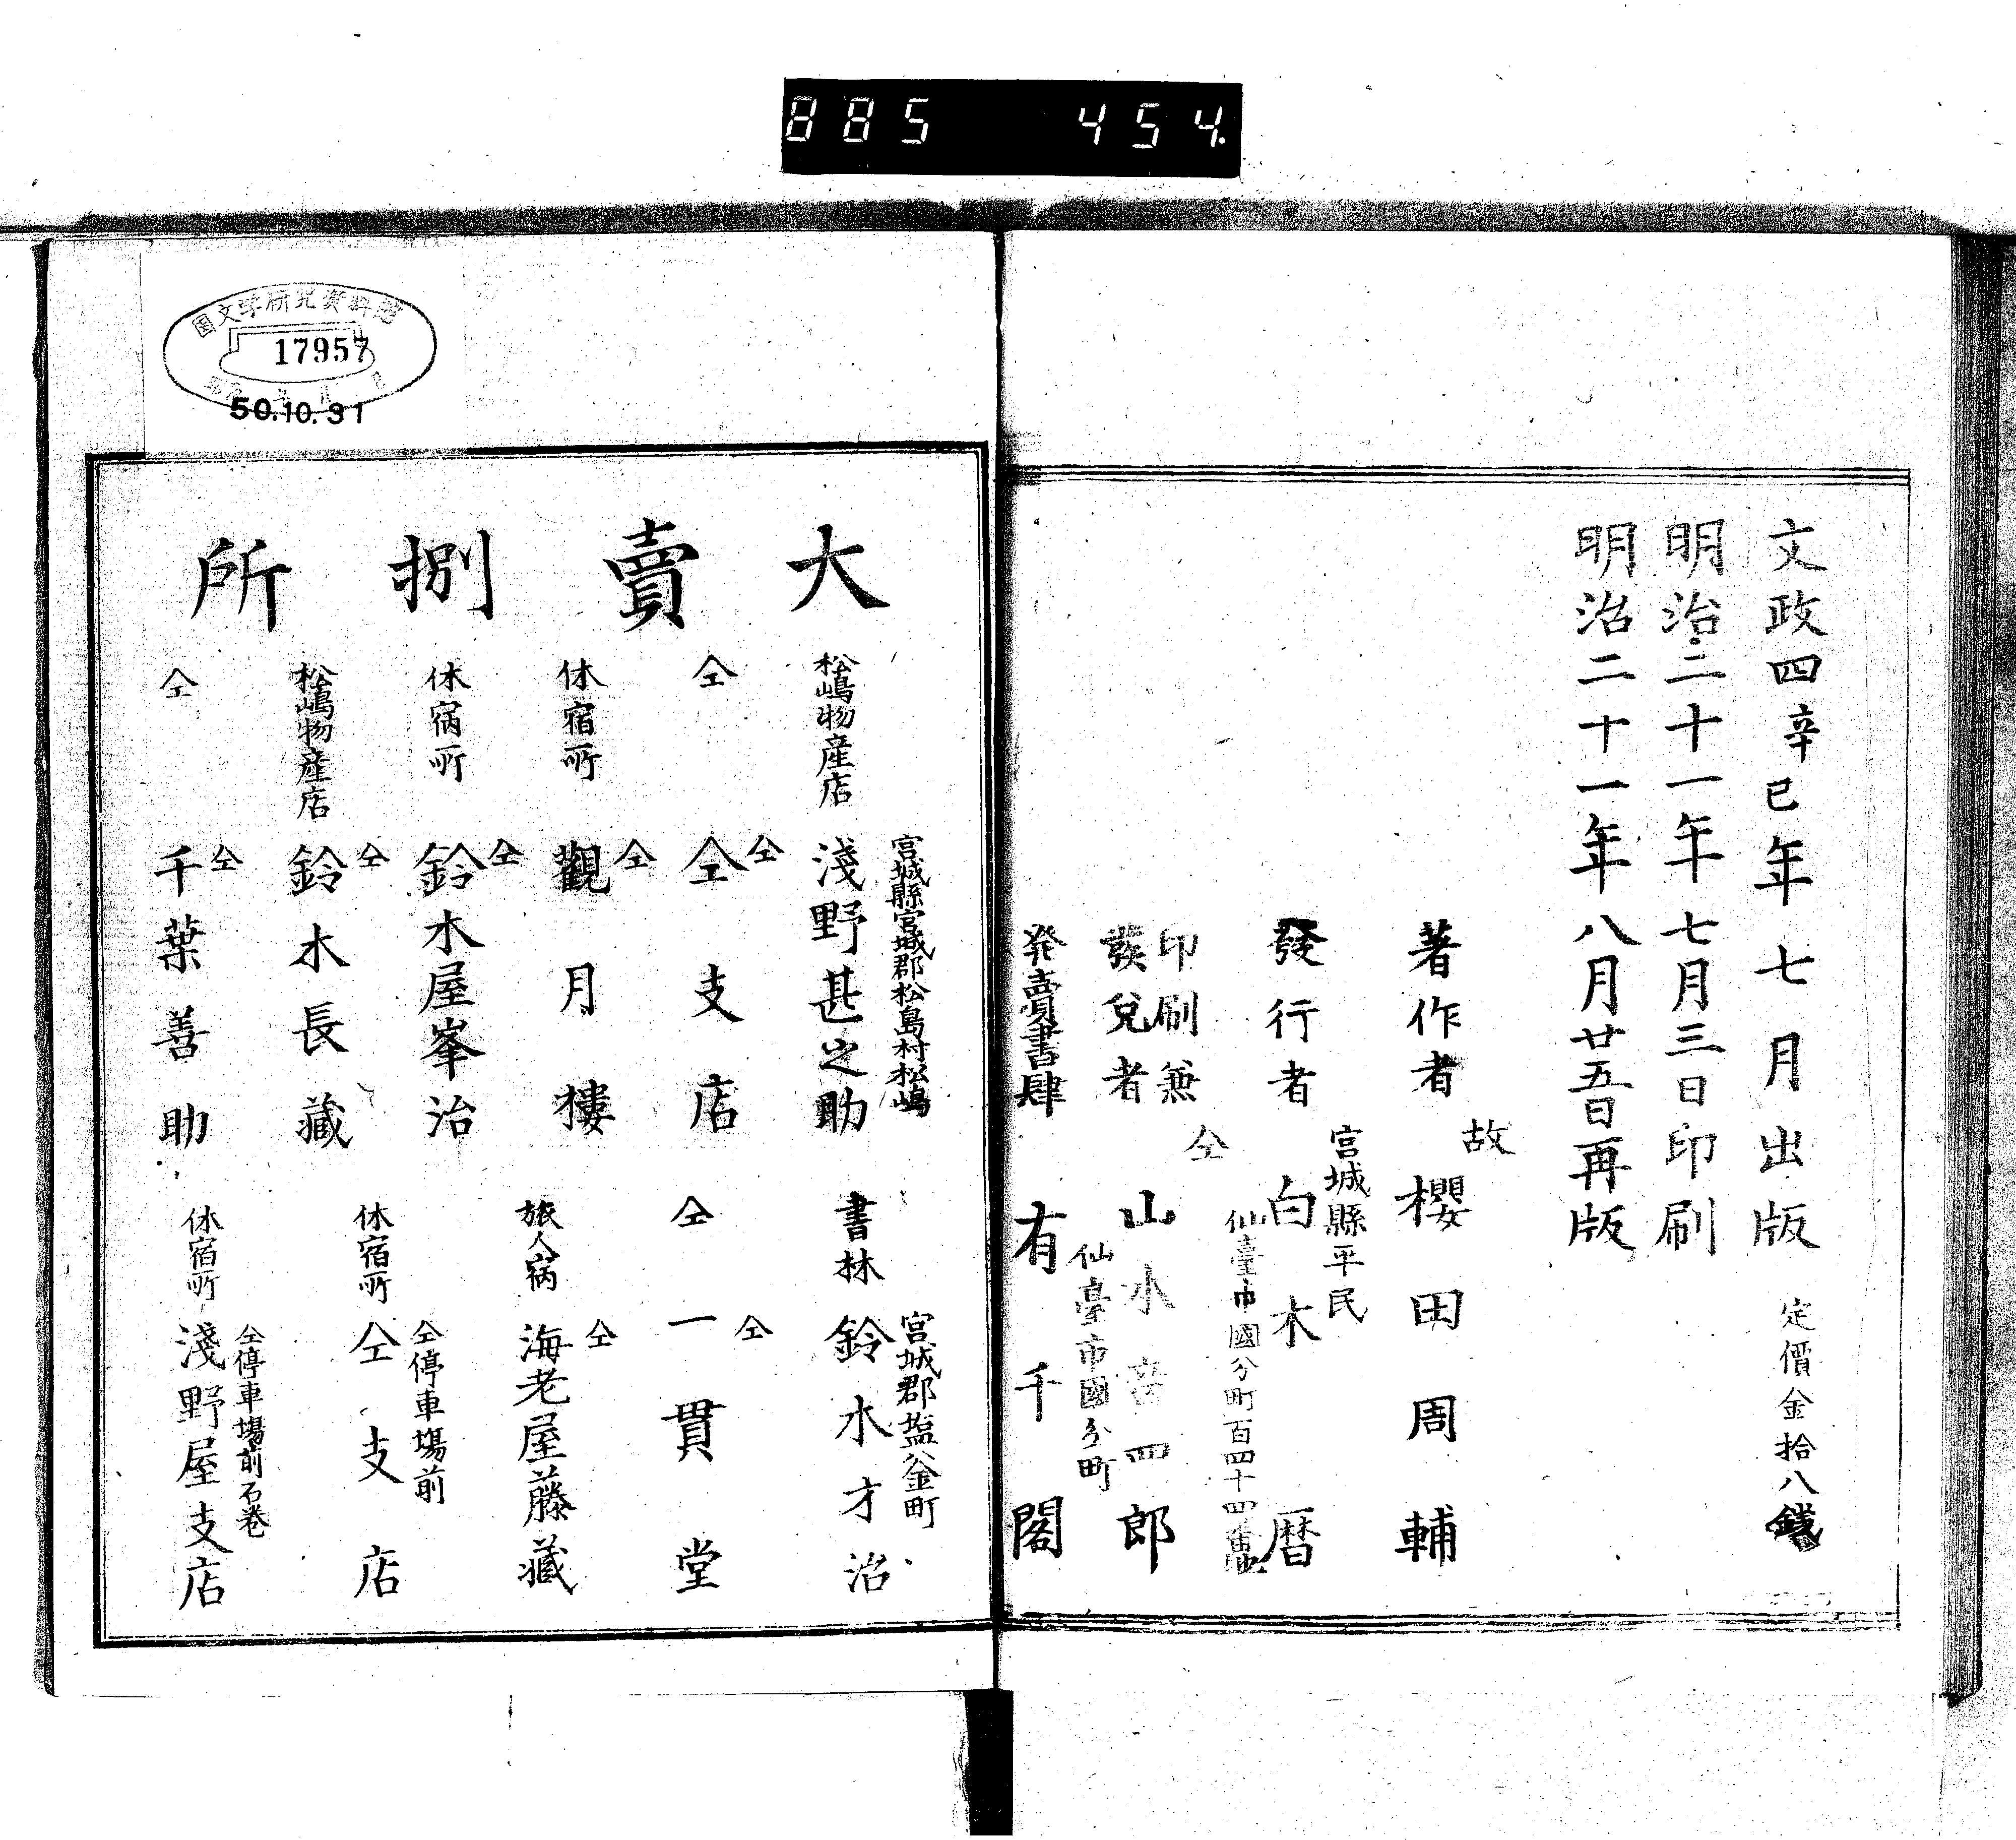 885 454.
文政四辛巳年七月出版 定價金拾八錢
明治二十一年七月三日印刷
明治二十一年八月廿五日再版
著作者 故 櫻田周輔
宮城縣平民
發行者 白木 暦
仝 仙臺市國分町百四十四番地
印刷兼
發兌者 山水 四郎
仙臺市國分町
発賣書肆 有千閣
17957
50.10.31
大賣捌所
宮城縣宮城郡松島村松嶋
松嶋物産店 淺野甚之助
仝 仝 仝支店
休宿所 仝 觀月樓
休宿所 仝 鈴木屋峯治
松嶋物産店 仝 鈴木長藏
仝 仝 千葉善助
宮城郡塩釜町
書林 鈴木才治
仝 仝 一貫堂
旅人宿 仝 海老屋藤藏
仝停車場前
休宿所 仝支店
仝停車場前石巻
休宿所 淺野屋支店